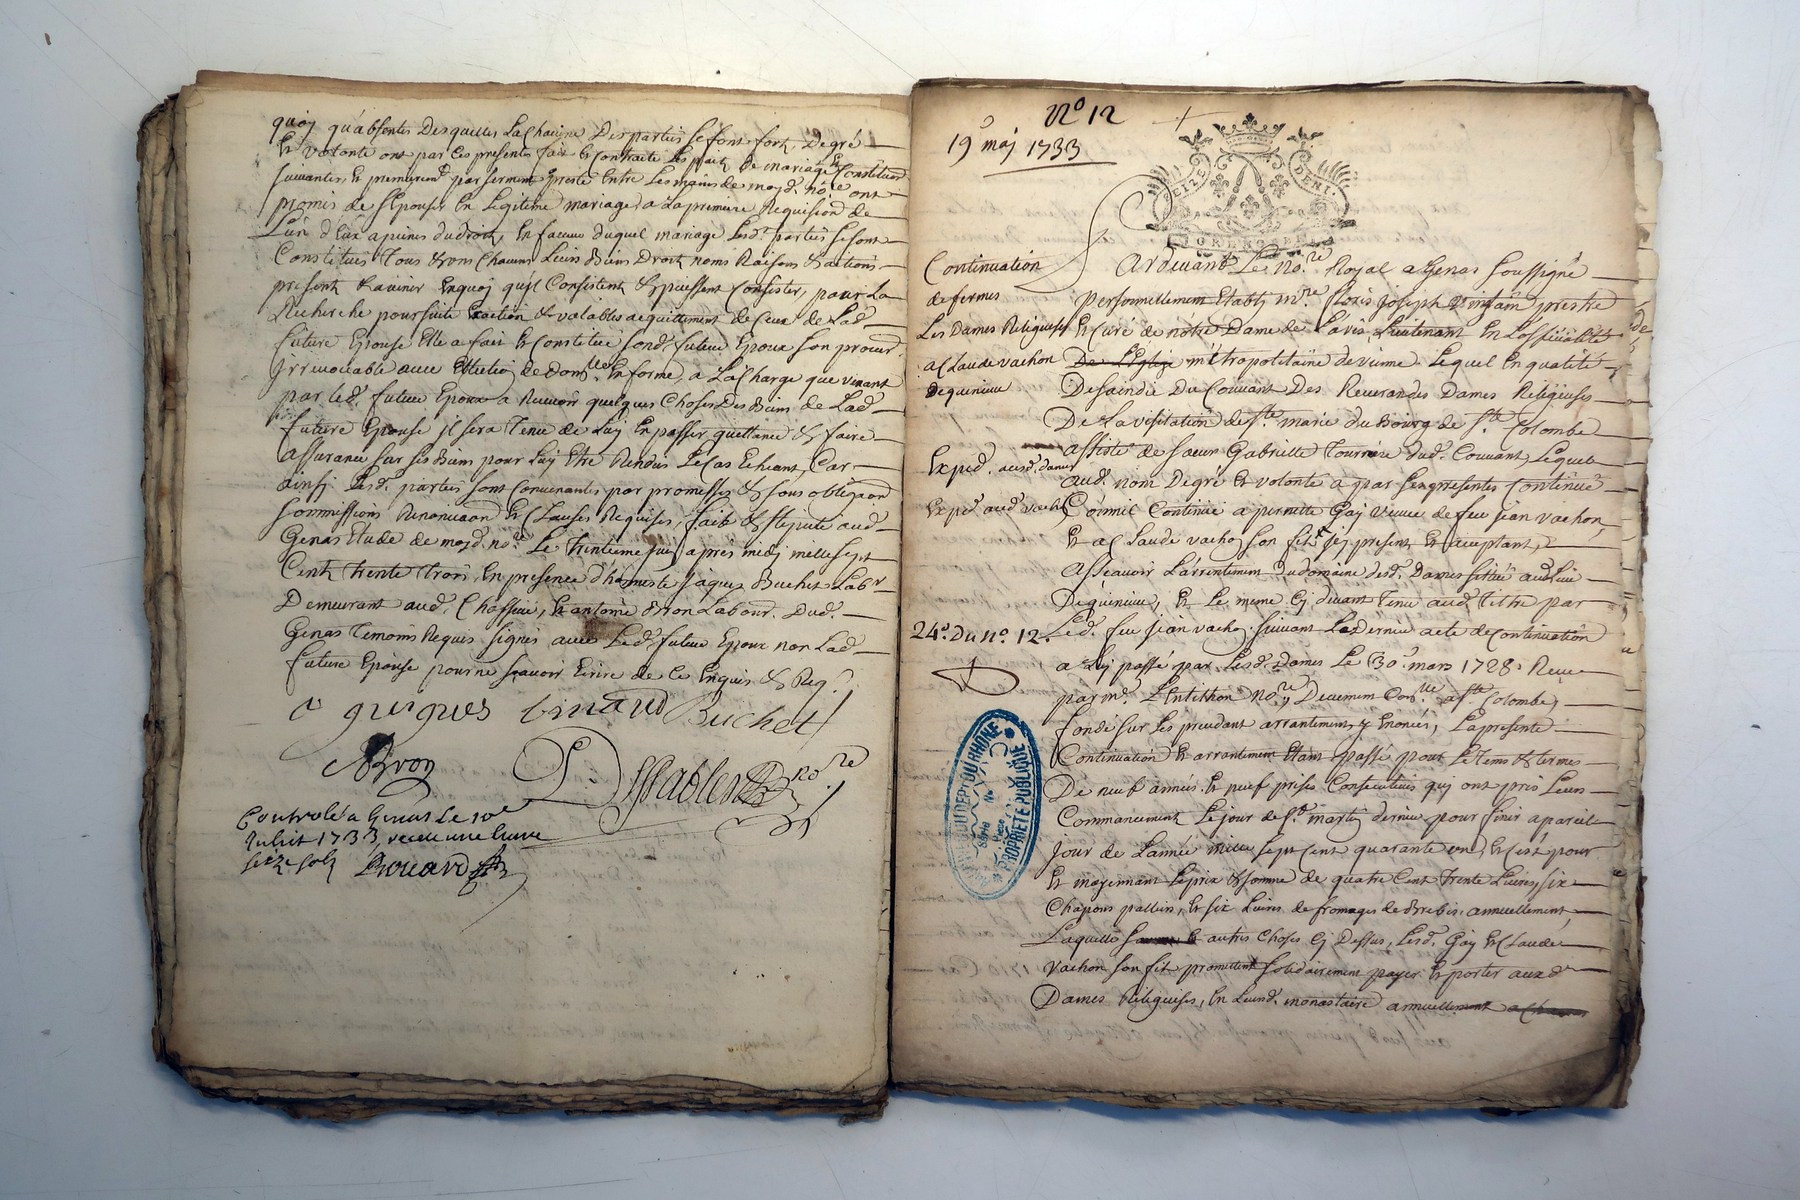 quoy qu'absentes Desquelles La Chacune Des parties se font fort, De gré
Et volonté ont par Ces presentes fait Et Contracté Les pact de mariage Et Constitution
suivantes, Et premierem.t par serment presté Entre Les mains de moyd. no.re ont
promis de s'Epouser En Legitime mariage, a La premiere Requisition de
L'un d'Eux apeines du droit, En faveur duquel mariage Lesd. parties se sont
Constitués Tous Et uns Chacuns Leurs Biens Droits noms Raisons & actions
present & avenir Enquoy quils Consistent & puissent Consister, pour La
Recherche poursuite Exaction & valables acquittement de Ceux de Lad.
future Epouse Elle a fait Et Constitué sond. futeur Epoux son procur.
Irrevocable avec Election de Dom.lle En forme, a La Charge que venant
par led. futeur Epoux a Recevoir quelques Choses Des Biens de Lad.
future Epouse il sera Tenu de Luy En passer quittance & faire
assurance sur ses Biens pour Luy Etre Rendus Le Cas Echeant, Car
ainsy Lesd. parties sont Convenantes par promesses & sous obliga'on
soumissions Renoncia'on Et Clauses Requises, fait & stipulé aud.
Genas Etude de moyd. no.re Le Trentieme après midy mille sept
Cents Trente Trois, En presence d'honneste Jaques Buchet Lab.r
Demeurant aud. Chassieu, Et antoine Bron Labour. Dud.
Genas Temoins Requis signés avec Led. futeur Epoux non Lad.
future Epouse pour ne sçavoir Ecrire de Ce Enquis & Req.
Buchet
Bron
no.re
Controlé a Genas Le 10.e
Juliet 1733, receu une livre
seize sols
N.o 12
19 maj 1733
SEIZE DENI.
GRENOBLE
Pardevant Le No.re Royal a Genas soussigné
Continuation
de fermes
Les Dames Religieuses
a Claude vachon
Dequincieu
personnellement Etably m.re floris joseph prestre
Et Curé de nôtre Dame de Lavis, Lieutenant En L'officialité
De L'Eglize métropolitaine de vienne Lequel En qualité
Du Couvant Des Reverandes Dames Religieuses
De La visitation de S.te marie du Bourg de S.te Colombe
Exped. ausd. dames
assisté de sœur Gabrielle Tourriere dud. Couvant, Lequel
aud. nom De gré Et volonté a par ses presentes Continué
Exped. aud. vachon
Comme Continüe a pernette Gay veuve de feu jean vachon,
Et a Claude vachon son fils icy present, Et acceptant,
Assavoir L'arrentement du domaine desd. Dames scitué audlieu
Dequincieu, Et Le meme Cy devant Tenu aud. Tittre par
24.e Du n.o 12.
Led. feu jean vachon suivant Le dernier acte de Continuation
a Luy passé par Lesd. Dames Le 30.e mars 1728. Receu
par m.e no.re, Deuement a S.te Colombe,
fondé sur Les precedant arrantements y Enoncés, La presente
Continuation Et arrantement Etant passé pour Le Tems & termes
De neuf années & neuf prises Consecutives qui ont pris Leurs
Commancement Le jour de S.t martin dernier pour finir a pareil
jour de L'année mille sept Cent quarante un, Et C'est pour
Et moyennant Le prix & somme de quatre Cent Trente Livres, six
Chapons paillers, Et six Livres de fromages de Brebis, annuellement,
Laquelle Et autres Choses Cy Dessus, Lesd. Gay Et Claude
vachon son fils promettent solidairement payer Et porter auxd.
Dames Religieuses, En Leursd. monastaire annuellement
DEPT DU RHÔNE
PROPRIÉTÉ PUBLIQUE